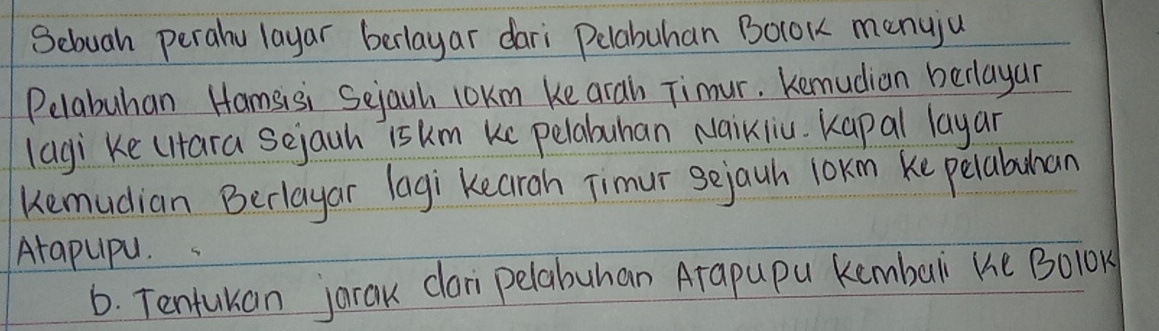 Sebuah perahu layar berlayar dari Pelabuhan Bolok menuju
Pelabuhan Hamsisi Sejauh 10km ke arah Timur. Kemudian berlayar
lagi ke utara Sejauh 15 km ke pelabuhan Naikliu. Kapal layar
Kemudian Berlayar lagi kearah Timur sejauh 10km ke pelabuhan
Atapupu.
b. Tentukan jarak dari pelabuhan Atapupu kembali ke Bolok